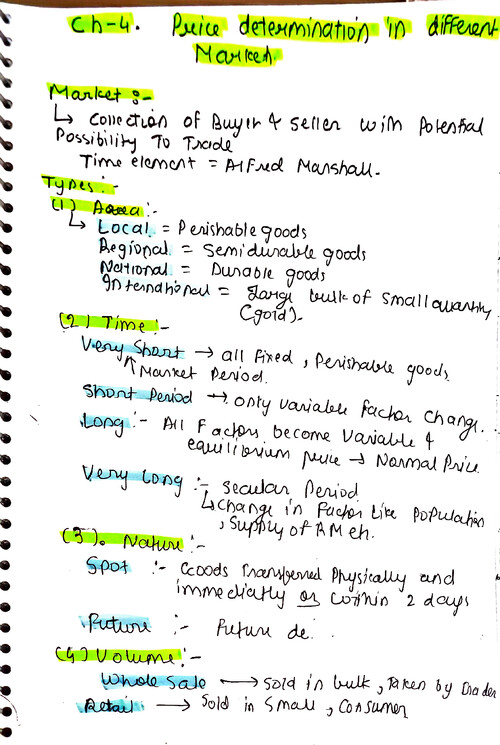 Ch-4. Price determination in different
Market.
Market :-
↳ Collection of Buyer & Seller with Potential
Possibility To Trade
Time element = Alfred Marshall.
Types :-
(1) Area :-
↳ Local = Perishable goods
Regional = Semidurable goods
National = Durable goods
International = Large bulk of small quantity
(gold).
(2) Time :-
Very Short → all Fixed, Perishable goods
↑ Market Period.
Short Period → only variable Factor change.
Long :- All Factors become variable &
equilibrium price → Normal Price.
Very Long :- Secular Period
↳ Change in Factor Like Population
, Supply of RM etc.
(3). Nature :-
Spot :- Goods Transferred Physically and
immediatly or within 2 days
Future :- Future de
(4) Volume :-
Whole Sale → Sold in bulk, Taken by trader
Retail → Sold in Small, Consumer